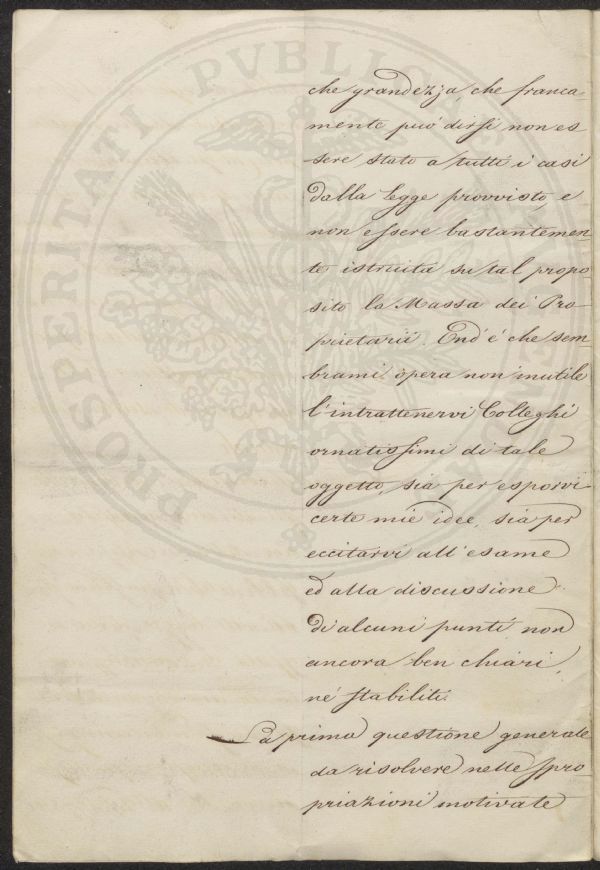 che grandezza che franca-
mente può dirsi non es
sere stato a tutti i casi
dalla legge provvisto, e
non essere bastantemen-
te istruita su tal propo-
sito la Massa dei Pro-
prietarii. End' è che sem
brami opera non inutile
l'intrattenervi Colleghi
ornatissimi di tale
oggetto, sia per esporvi
certe mie idee, sia per
eccitarvi all'esame
ed alla discussione
di alcuni punti non
ancora ben chiari,
nè stabiliti.
La prima questione generale
da risolvere nelle spro
priazioni motivate
PROSPERITATI PVBLICAE